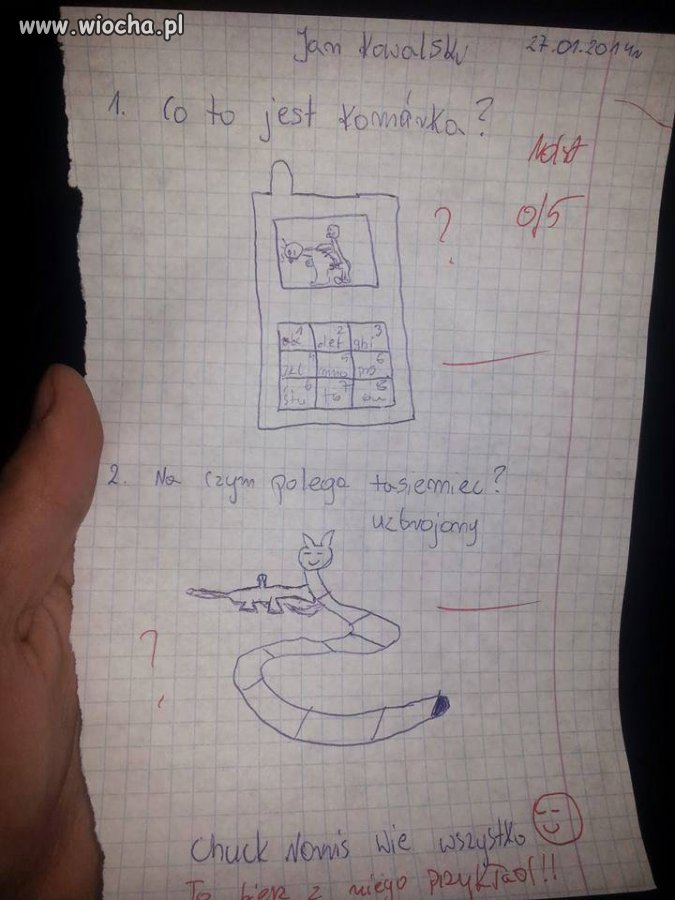 www.wiocha.pl
Jan Kowalski 27.01.2014r
1. Co to jest komórka?
Ndst
0/5
?
1 2 3
def ghi
5 6
jkl mno
6 7 8
stu
2. Na czym polega tasiemiec?
uzbrojony
?
Chuck Norris wie wszystko
To bierz z niego przykład!!